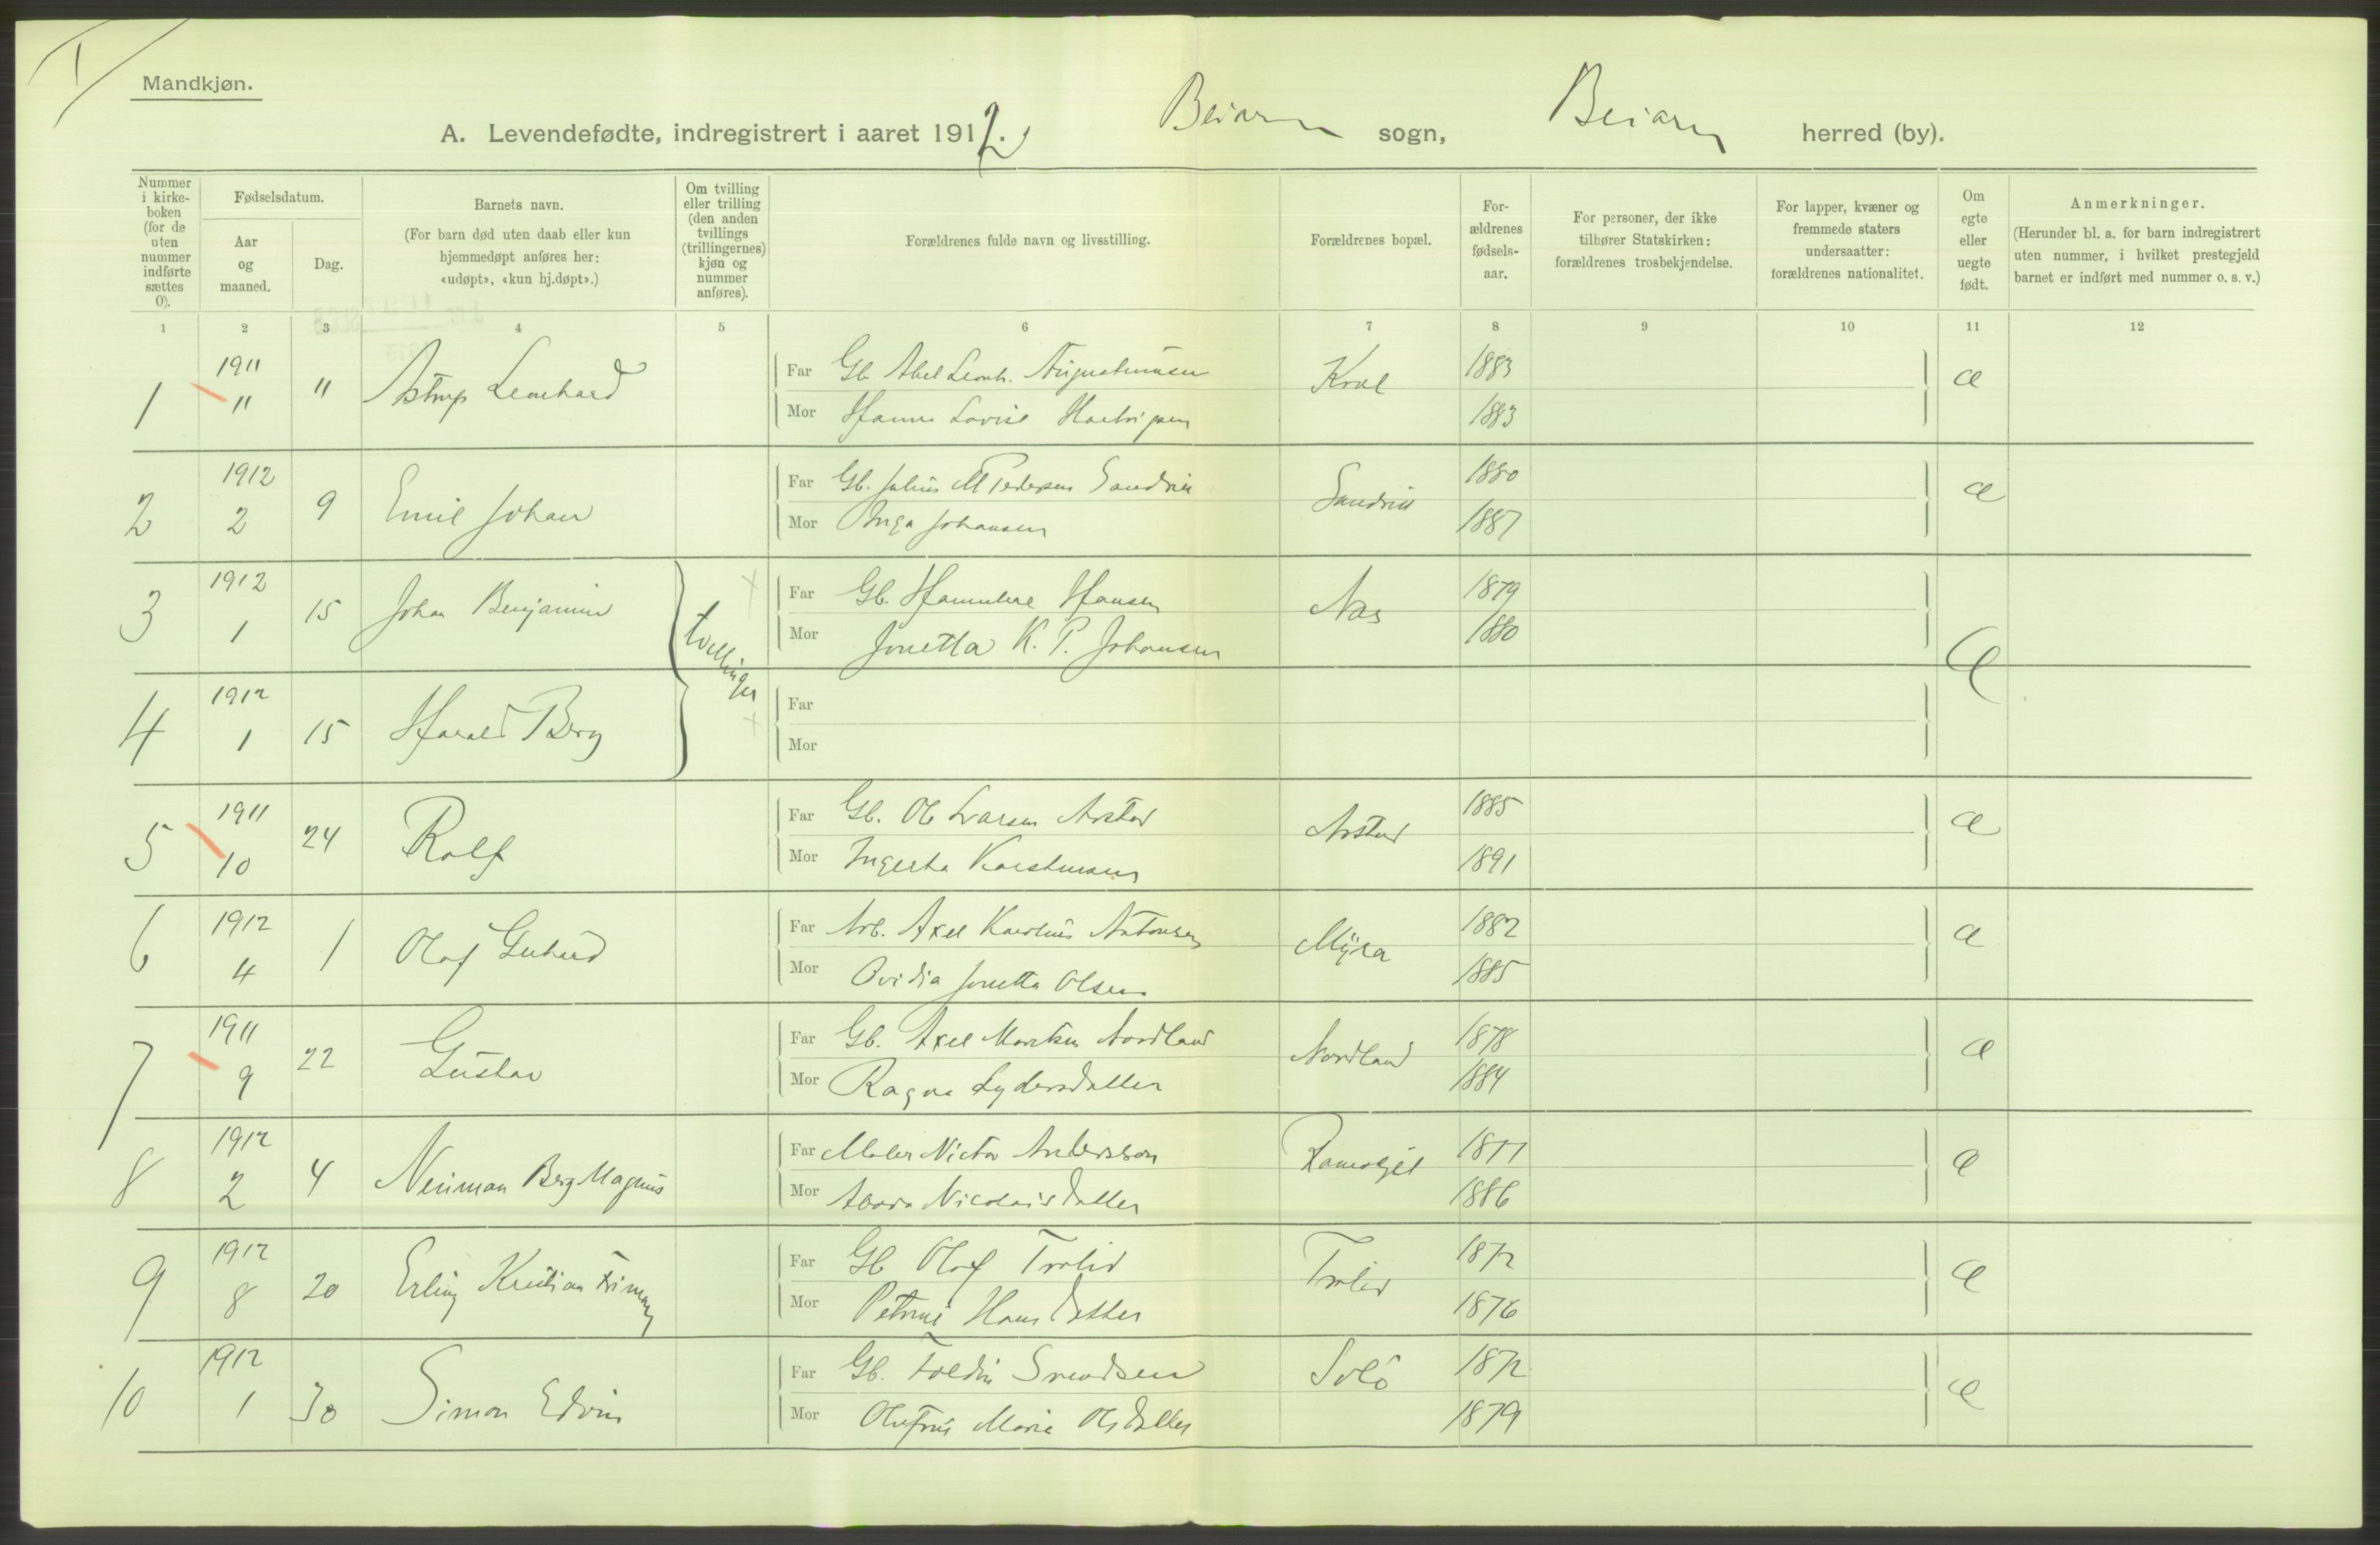 1
Mandkjøn.
A. Levendefødte, indregistrert i aaret 1912. Beiarn sogn, Beiarn herred (by).
Nummer i kirke-boken (for de uten nummer indførte sættes 0).
Fødselsdatum.
Aar og maaned.
Dag.
Barnets navn.
(For barn død uten daab eller kun hjemmedøpt anføres her: «udøpt», «kun hj.døpt».)
Om tvilling eller trilling (den anden tvillings (trillingernes) kjøn og nummer anføres).
Forældrenes fulde navn og livsstilling.
Forældrenes bopæl.
For-ældrenes fødsels-aar.
For personer, der ikke tilhører Statskirken: forældrenes trosbekjendelse.
For lapper, kvæner og fremmede staters undersaatter: forældrenes nationalitet.
Om egte eller uegte født.
Anmerkninger.
(Herunder bl. a. for barn indregistrert uten nummer, i hvilket prestegjeld barnet er indført med nummer o. s. v.)
1 2 3 4 5 6 7 8 9 10 11 12
1 1911 11 11 Astrup Leonhard Far Gb. Abel Leonh. Augustinusen 1883 æ
Mor Hanna Lovise 1883
2 1912 2 9 Emil Johan Far Gb. Julius M Pedersen Sandvik Sandvik 1880 æ
Mor Inga Johansen 1887
3 1912 1 15 Johan Benjamin tvillinger Far Gb. Hansen Nes 1879 æ
Mor Jonetta K. P. Johansen 1880
4 1912 1 15 Harald Berg Far
Mor
5 1911 10 24 Rolf Far Gb. Ole Larsen Arstad Arstad 1885 æ
Mor 1891
6 1912 4 1 Olaf Far Arb. Axel Karolius Antonsen Myra 1882 æ
Mor Ovidia Jonetta Olsen 1885
7 1911 9 22 Gustav Far Gb. Axel Nordland Nordland 1878 æ
Mor Ragna Lydersdatter 1884
8 1912 2 4 Neuman Berg Magnus Far Maler Victor Andersson 1877 æ
Mor Nicolaisdatter 1886
9 1912 8 20 Erling Kristian Far Gb Olaf Trolid Trolid 1872 æ
Mor Petrine Hansdatter 1876
10 1912 1 30 Simon Edvin Far Gb. Svendsen Solö 1872 æ
Mor Maria Olsdatter 1879